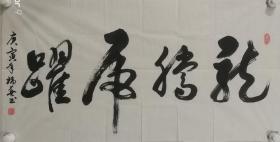 龍騰虎躍
庚寅年 書